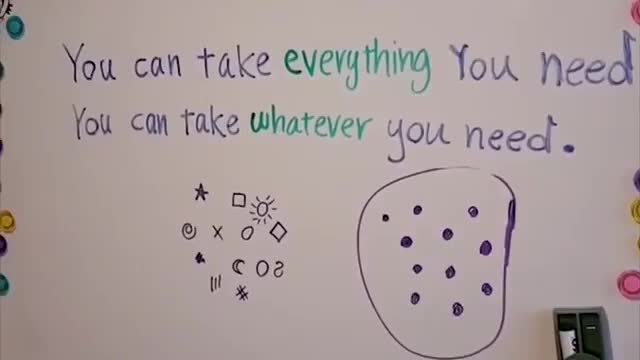 You can take everything You need
You can take whatever you need.